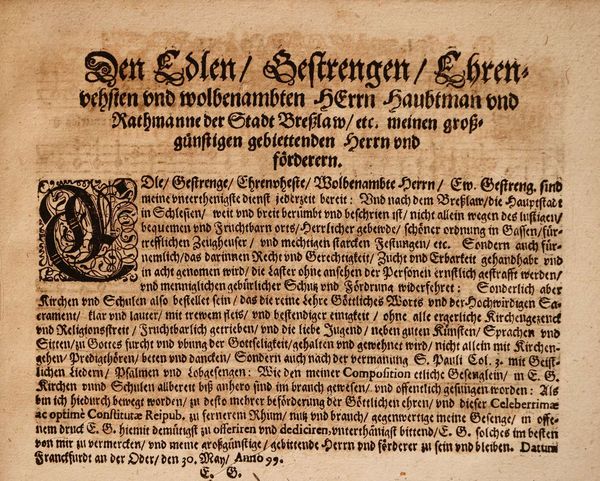 Den Edlen/ Gestrengen/ Ehren-
vehsten vnd wolbenambten HErrn Haubtman vnd
Rathmanne der Stadt Breßlaw/ etc. meinen groß-
günstigen gebiettenden Herrn vnd
förderern.
EDle/ Gestrenge/ Ehrenvheste/ Wolbenambte Herrn/ Ew. Gestreng. sind
meine vnterthenigste dienst jederzeit bereit: Vnd nach dem Breßlaw/ die Hauptstadt
in Schlesien/ weit vnd breit berümbt vnd beschrien ist/ nicht allein wegen des lustigen/
bequemen vnd Fruchtbarn orts/ Herrlicher gebewde/ schöner ordnung in Gassen/ für-
trefflichen Zeugheuser/ vnd mechtigen starcken Festungen/ etc. Sondern auch für-
nemlich/ das darinnen Recht vnd Gerechtigkeit/ Zucht vnd Erbarkeit gehandhabt vnd
in acht genomen wird/ die Laster ohne ansehen der Personen ernstlich gestrafft werden/
vnd menniglichen gebürlicher Schutz vnd Födrung widerfehret: Sonderlich aber
Kirchen vnd Schulen also bestellet sein/ das die reine Lehre Göttliches Worts vnd der Hochwirdigen Sa-
crament/ klar vnd lauter/ mit trewem fleis/ vnd bestendiger einigkeit/ ohne alle ergerliche Kirchengezenck
vnd Religionsstreit/ Fruchtbarlich getrieben/ vnd die liebe Jugend/ neben guten Künsten/ Sprachen vnd
Sitten/ zu Gottes furcht vnd vbung der Gottseligkeit/ gehalten vnd gewehnet wird/ nicht allein mit Kirchen-
gehen/ Predigthören/ beten vnd dancken/ Sondern auch nach der vermanung S. Pauli Col. 3. mit Geist-
lichen Liedern/ Psalmen vnd Lobgesengen: Wie den meiner Composition etliche Gesenglein/ in E. G.
Kirchen vnnd Schulen allbereit biß anhero sind im brauch gewesen/ vnd offentlich gesungen worden: Als
bin ich hiedurch bewegt worden/ zu desto mehrer beförderung der Göttlichen ehren/ vnd dieser Celeberrimæ
ac optimè Constitutæ Reipub. zu fernerem Rhum/ nutz vnd brauch/ gegenwertige meine Gesenge/ in offe-
nem druck E. G. hiemit demütigst zu offeriren vnd dediciren, vnterthänigst bittend/ E. G. solches im besten
von mir zu vermercken/ vnd meine großgünstige/ gebittende Herrn vnd förderer zu sein vnd bleiben. Datum
Franckfurdt an der Oder/ den 30. May/ Anno 99.
E. G.